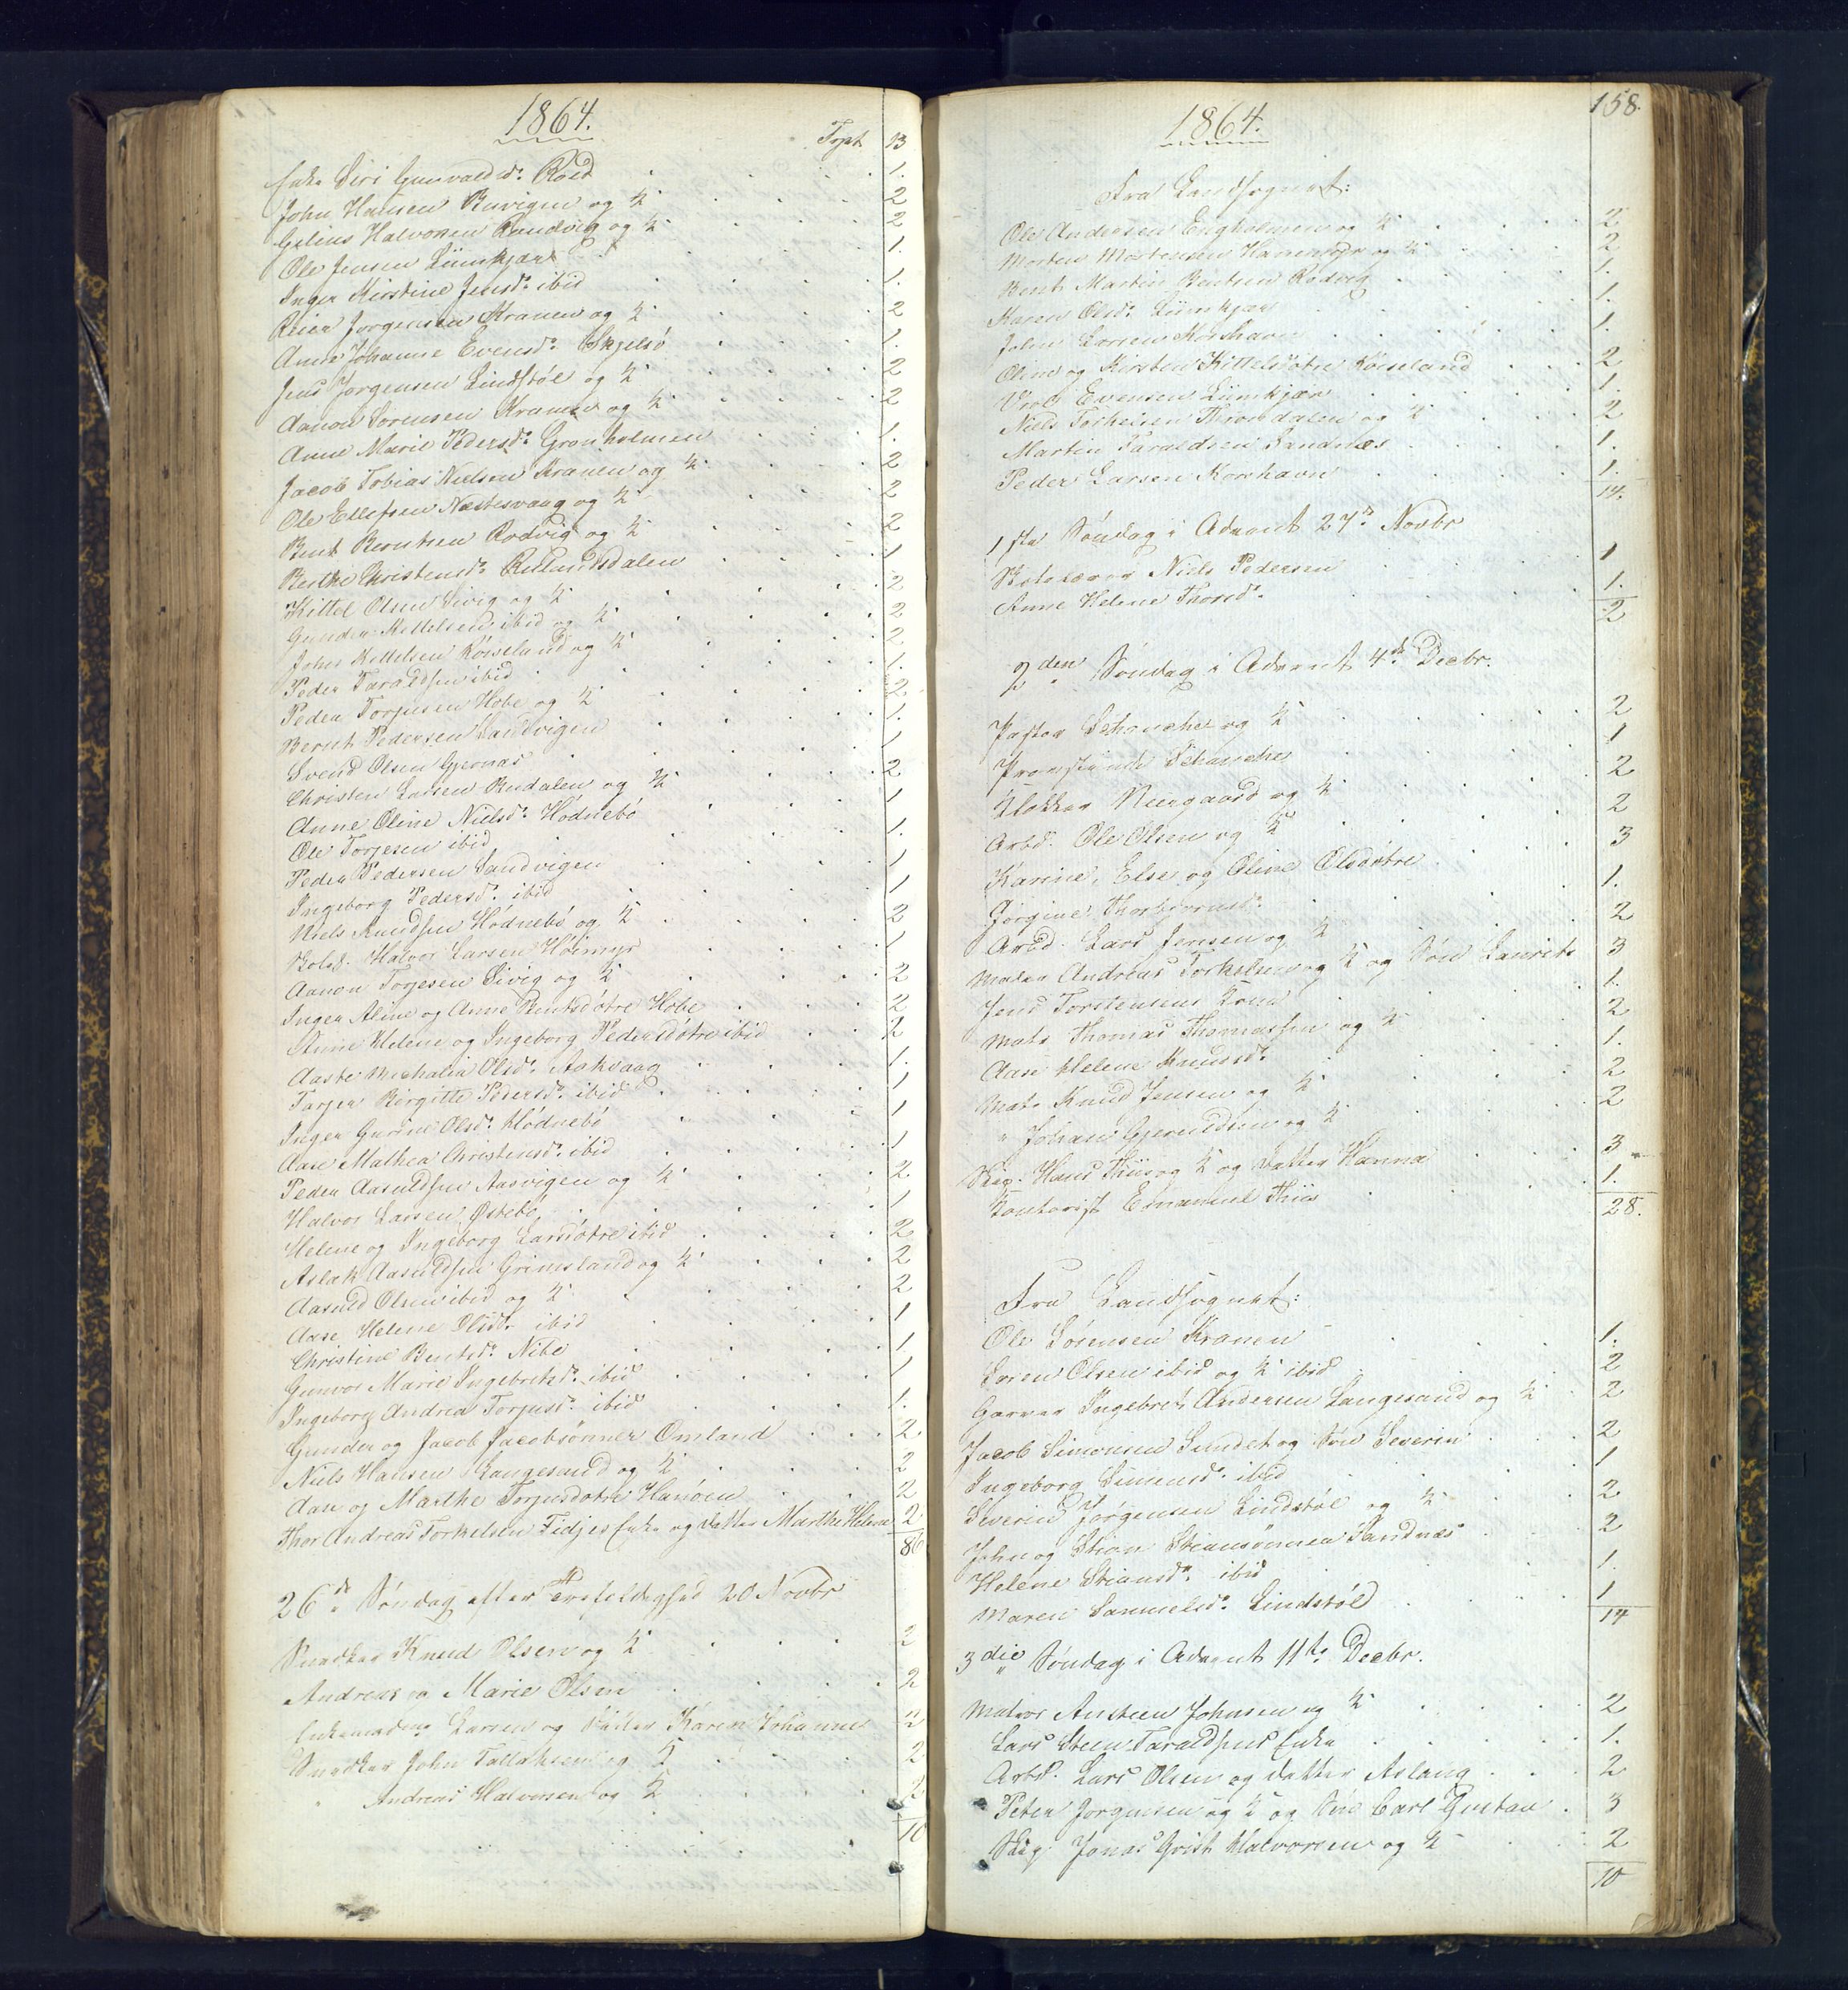 1864.
Tpt. 13
Enke Siri Gunvaldsd. Roed 1.
John Hansen Buvigen og K. 2
Gelius Halvorsen Randvig og K. 2
Ole Jensen Liimkjær 1.
Inger Kirstine Jensd. ibid 1.
Reier Jørgensen Kranen og K. 2
Anne Johanne Evensd. Skjelsø 1.
Jens Jørgensen Lindstøl og K. 2
Aanon Sørensen Kranen og K. 2
Anne Marie Pedersd. Grønholmen 1.
Jacob Tobias Nielsen Kranen og K. 2
Ole Ellefsen Næstesvaag og K. 2
Bent Berntsen Rødvig og K. 2
Berthe Christensd. 1
Kittel Olsen Sivig og K. 2
Gunder Kittelsen ibid og K. 2
John Kittelsen Røiseland og K. 2
Peder Taraldsen ibid 1.
Peder Torjusen Hobe og K. 2
Bernt Pedersen Sandvigen 1.
Svend Olsen Gjernæs 1
Christen Larsen Rudalen og K. 2
Anne Oline Nielsd. Hødnebø 1
Ole Torjesen ibid 1.
Peder Pedersen Sandvigen 1
Ingeborg Pedersd. ibid 1
Niels Knudsen Hødnebø og K. 2
Skolel. Halvor Larsen Høimyr 1
Aanon Torjesen Sivig og K. 2
Inger Aline og Anne Bentsdøtre Hobe 2
Anne Helene og Ingeborg Pedersdøtre ibid 2
Aaste Michalia Olsd. Aaksaag 1.
Torjer Birgitte Pedersd. ibid 1
Inger Gurine Olsd. Hødnebø 1
Aase Mathea Christensd. ibid 1
Peder Aasuldsen Aasvigen og K. 2
Halvor Larsen Østebø 1
Helene og Ingeborg Larsdøtre ibid 2
Aslak Aasuldsen Grimsland og K. 2
Aasuld Olsen ibid og K. 2
Aase Helene Olsd. ibid 1
Christine Bentsd. Nibe 1
Gunvor Marie Ingebretsd. ibid 1
Ingeborg Andrea Torjusd. ibid 1.
Gunder og Jacob Jacobsønner Omland 2
Niels Hansen Langesund og K. 2
Aase og Marthe Torjusdøtre Hanøen 2
Thor Andreas Torkelsen Tidjes Enke og Datter Marthe Helene 2
86
26de Søndag efter Trefoldighed 20 Novbr
Snedker Knud Olsen og K. 2
Andreas og Marie Olsen 2
Enkemadme Larsen og Datter Karen Johanne 2
Snedker John Tallaksen og K. 2
" Andreas Halvorsen og K. 2
10
158.
1864.
Fra Landsognet:
Ole Andersen Engholmen og K. 2
Morten Mortensen og K. 2
Bent Martin Bentsen Rødvig 1.
Karen Olsd. Liimkjær 1.
John Larsen Korshavn 1.
Oline og Kirsten Kittelsdøtre Røiseland 2
Evensen Liimkjær 1.
Niels Torkelsen Throndalen og K. 2
Martin Taraldsen Sandnæs 1.
Peder Larsen Korshavn 1.
14.
1ste Søndag i Advent 27de Novbr
Skolelærer Niels Pedersen 1
Anne Helene Thorsd. 1.
2
2den Søndag i Advent 4de Decbr.
Pastor Schanche og K. 2
Provstinde Schanche 1
Klokker Neergaard og K. 2
Arbd. Ole Olsen og K. 2
Karine, Else og Oline Olsdøtre 3
Jørgine Thorbjørnsd. 1.
Arbd. Lars Jensen og K. 2
Maler Andreas Torkelsen og K. og Søn Laurits 3
Jens Torstensens Kone 1.
Mats Thomas Thomassen og K. 2
Aase Helene Knudsd. 1.
Mats Knud Jensen og K. 2
" Johan Gjeruldsen og K. 2
Skip. Hans Thiis og K. og Datter Hanna 3
Kontorist Emanuel Thiis 1.
28.
Fra Landsognet:
Ole Sørensen Kranen 1.
Søren Olsen ibid og K. ibid 2
Garver Ingebret Andersen Langesund og K. 2
Jacob Simonsen Sundet og Søn Severin 2
Ingeborg Simonsd. ibid 1
Severin Jørgensen Lindstøl og K. 2
John og Stian Stiansønner Sandnæs 2
Helene Stiansd. ibid 1.
Maren Samuelsd. Lindstøl 1
14
3die Søndag i Advent 11te Decbr.
Matros Austeen Johnsen og K. 2
Lars Steen Taraldsens Enke 1.
Arbd. Lars Olsen og Datter Aslaug 2
Peter Jørgensen og K. og Søn Carl Gustav 3
Skip. Jonas Qvist Halvorsen og K. 2
10